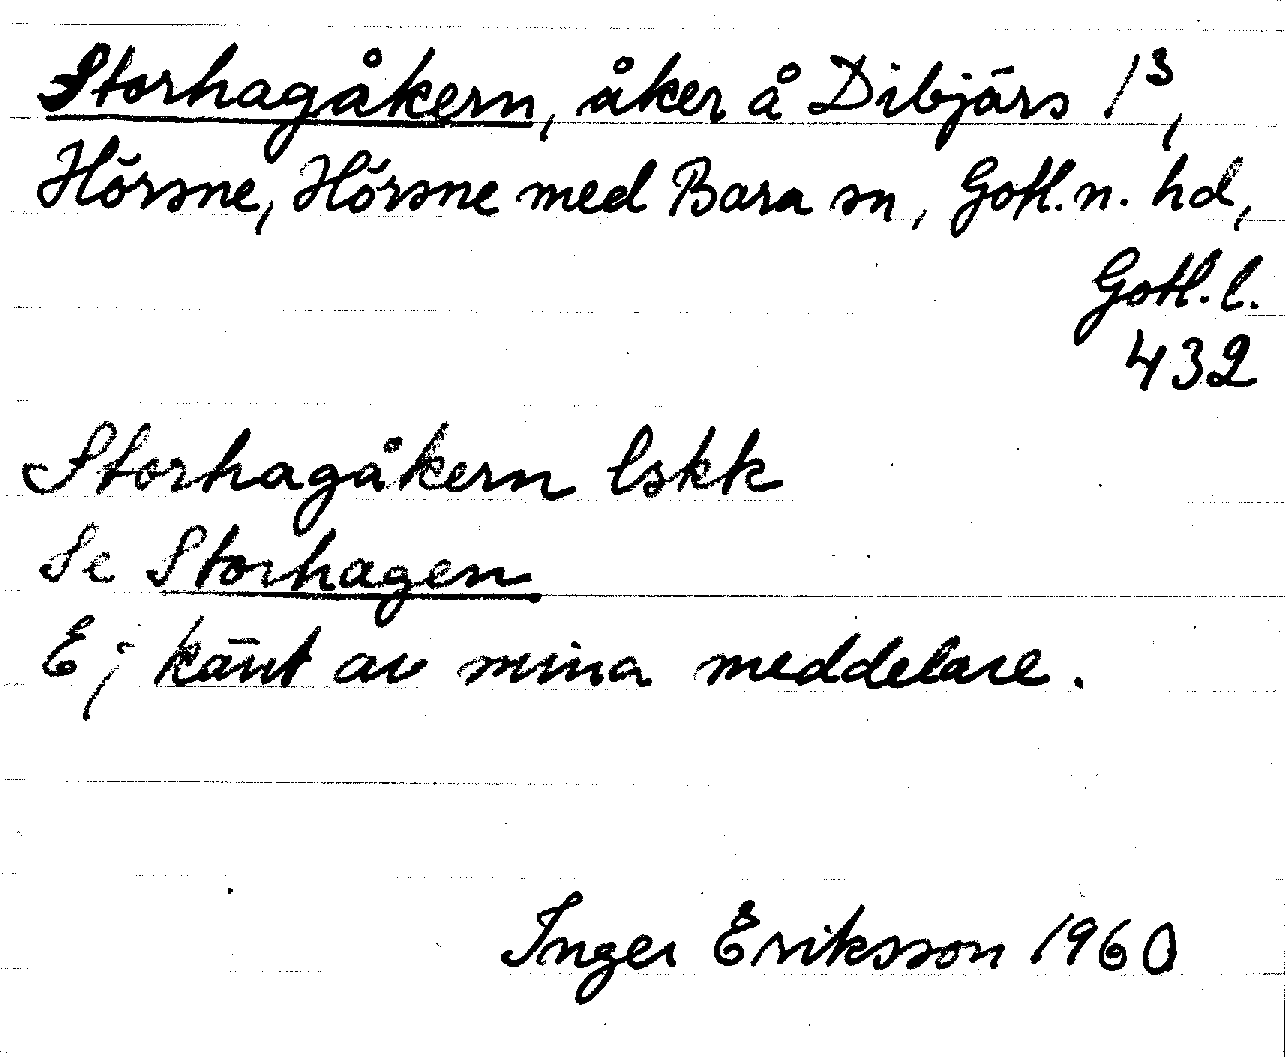 Storhagåkern, åker å Dibjärs 1³,
Hörsne, Hörsne med Bara sn, Gotl. n. hd,
Gotl. l.
432
Storhagåkern lskk
Se Storhagen
Ej känt av mina meddelare.
Inger Eriksson 1960